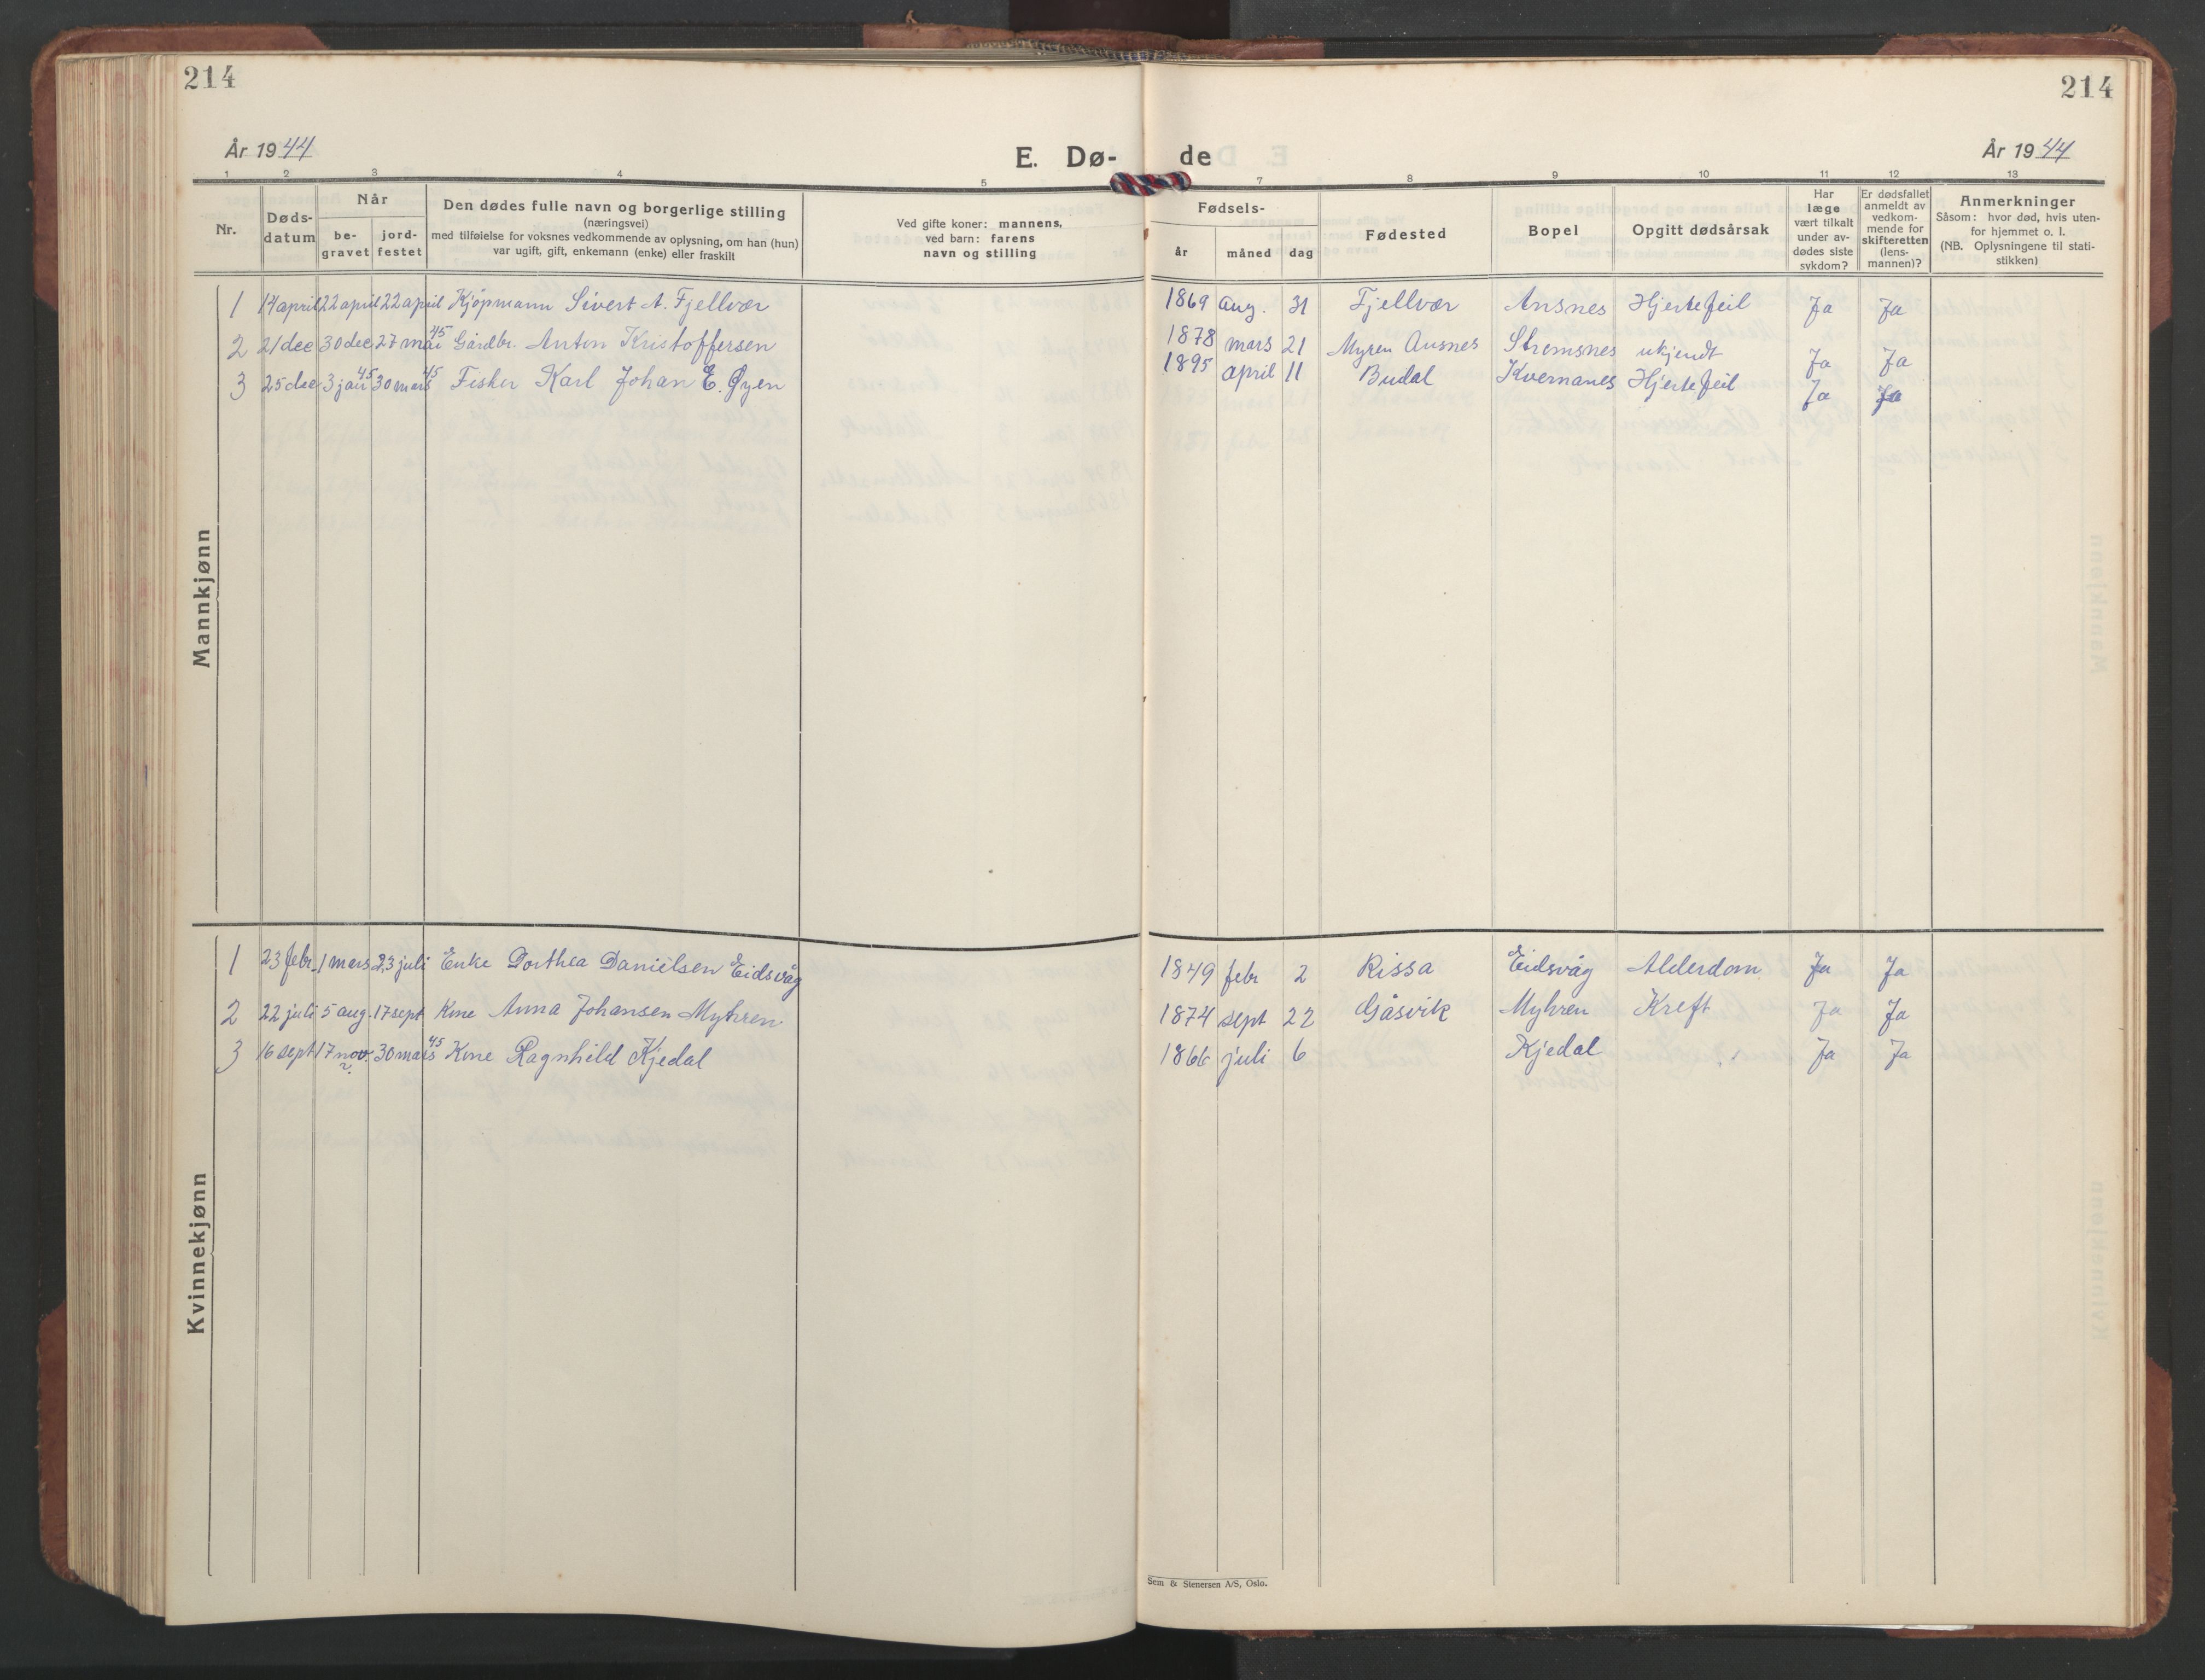 214
214
År 1944
E. Dø- de
År 1944
1 2 3 4 5 7 8 9 10 11 12 13
Nr.
Døds-
datum
Når
be-
gravet
jord-
festet
Den dødes fulle navn og borgerlige stilling
(næringsvei)
med tilføielse for voksnes vedkommende av oplysning, om han (hun)
var ugift, gift, enkemann (enke) eller fraskilt
Ved gifte koner: mannens,
ved barn: farens
navn og stilling
Fødsels-
år
måned
dag
Fødested
Bopel
Opgitt dødsårsak
Har
læge
vært tilkalt
under av-
dødes siste
sykdom?
Er dødsfallet
anmeldt av
vedkom-
mende for
skifteretten
(lens-
mannen)?
Anmerkninger
Såsom: hvor død, hvis uten-
for hjemmet o. l.
(NB. Oplysningene til stati-
stikken)
Mannkjønn
1 14 april 22 april 22 april Kjøpmann Sivert A. Fjellvær 1869 aug. 31 Fjellvær Ansnes Hjertefeil Ja Ja
2 21 dec 30 dec 27 mai 45 Gårdbr. Anton Kristoffersen 1878 mars 21 Myren Ansnes Strømsnes ukjendt Ja Ja
3 25 dec 3 jan 45 30 mars 45 Fisker Karl Johan E. Øyen 1895 april 11 Budal Kvernanes Hjertefeil Ja Ja
Kvinnekjønn
1 23 febr. 1 mars 23 juli Enke Dorthea Danielsen Eidsvåg 1849 febr 2 Rissa Eidsvåg Alderdom Ja Ja
2 22 juli 5 aug. 17 sept Kone Anna Johansen Myhren 1874 sept 22 Gåsvik Myhren Kreft Ja Ja
3 16 sept 17 nov. 30 mars 45 Kone Ragnhild Kjedal 1866 juli 6 Kjedal Ja Ja
Sem & Stenersen A/S, Oslo.